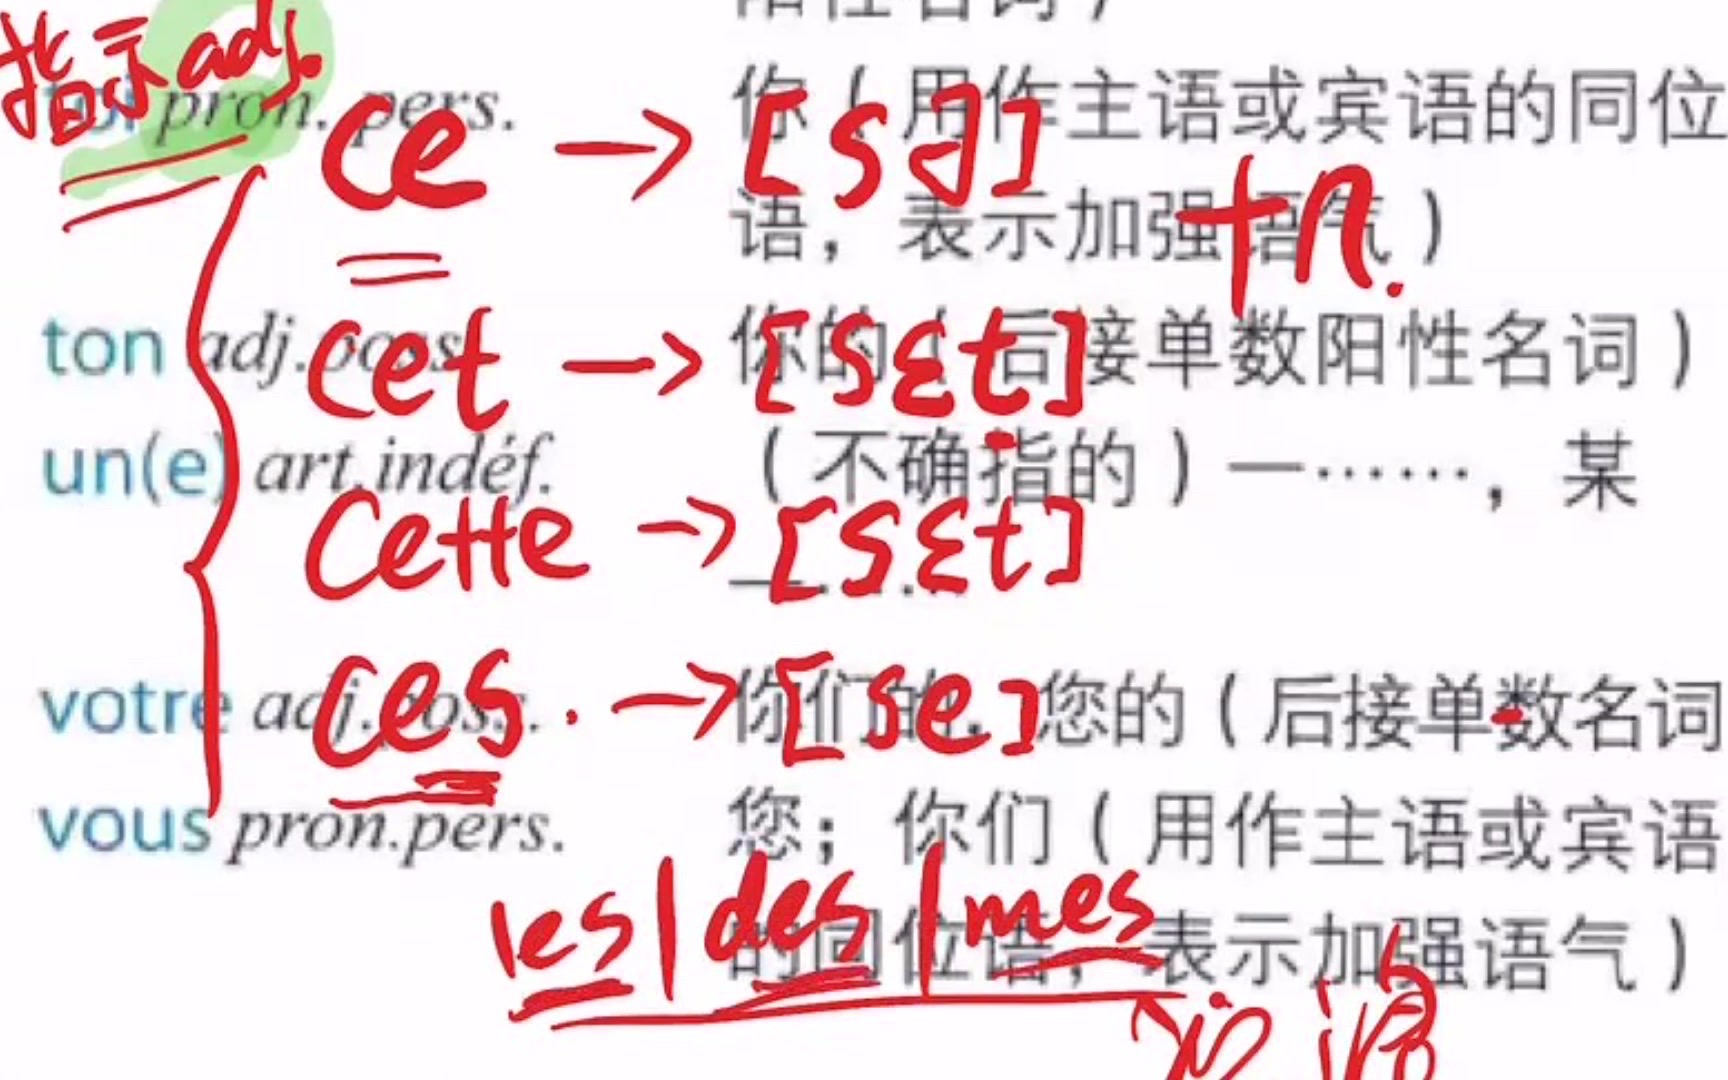 指示adj.
pron. pers.
你（用作主语或宾语的同位
ce → [sə]
语，表示加强语气）
+n.
ton adj.poss.
你的（后接单数阳性名词）
cet → [sɛt]
un(e) art.indéf.
（不确指的）一……，某
cette → [sɛt]
votre adj.poss.
你们的，您的（后接单数名词
ces. → [se]
vous pron.pers.
您；你们（用作主语或宾语
les | des | mes
的同位语，表示加强语气）